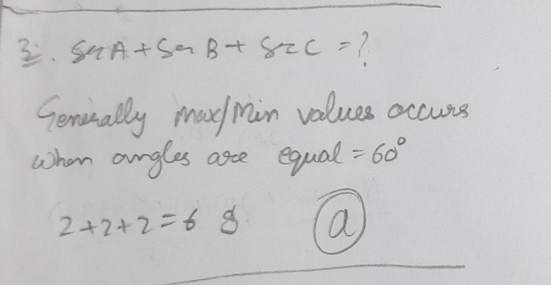 3. Sec A + Sec B + Sec C = ?
Generally max/Min values occurs
when angles are equal = 60°
2+2+2 = 6
a